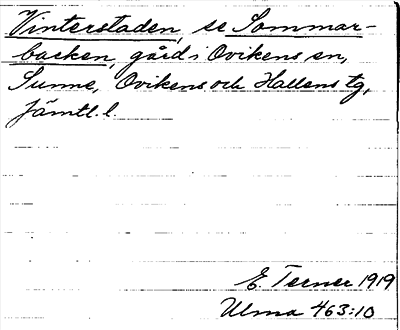 Vinterstaden, se Sommar-
backen, gård i Ovikens sn,
Sunne, Ovikens och Hallens tg,
Jämtl. l.
E. Terner 1919
Ulma 463:10